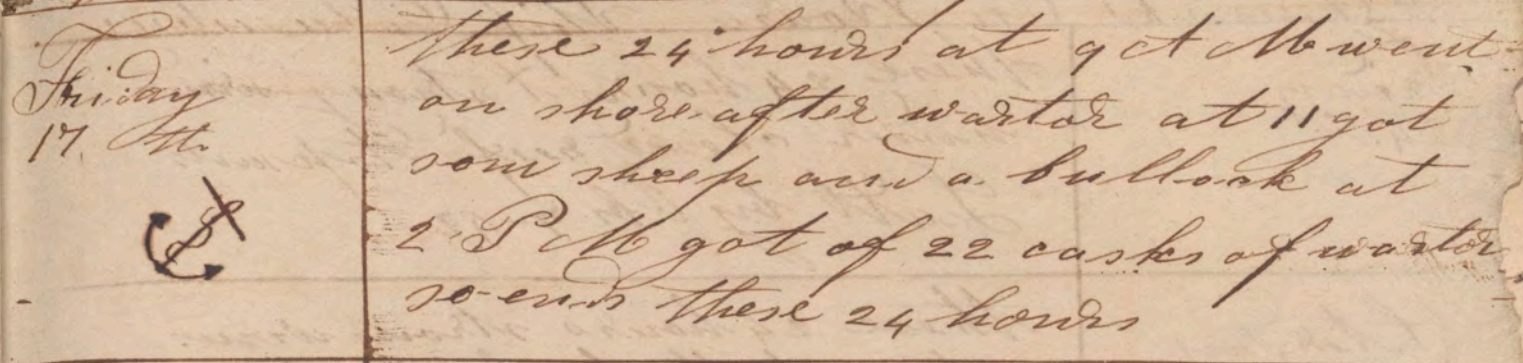 Friday
17 th
these 24 hours at 9 A M went
on shore after wartor at 11 got
som sheep and a bullock at
2 P M got of 22 casks of wartor
so ends these 24 hours